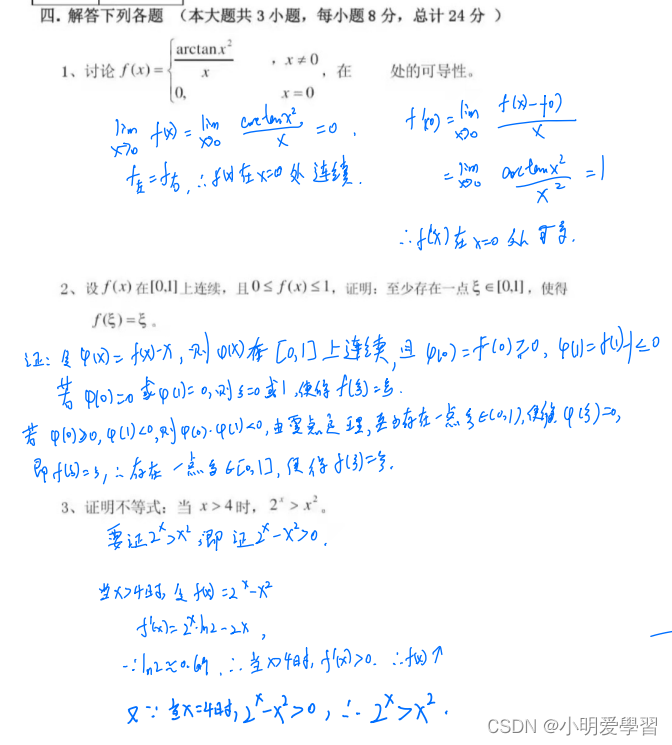 四. 解答下列各题 （本大题共 3 小题，每小题 8 分，总计 24 分 ）
1、讨论 f(x) = { arctan x² / x , x ≠ 0
0, x = 0 , 在 处的可导性。
lim x→0 f(x) = lim x→0 arctan x² / x = 0 .
f左 = f右, ∴ f(x) 在 x=0 处 连续.
f'(0) = lim x→0 f(x)-f(0) / x
= lim x→0 arctan x² / x² = 1
∴ f(x) 在 x=0 处 可导.
2、设 f(x) 在[0,1]上连续，且 0 ≤ f(x) ≤ 1，证明：至少存在一点 ξ ∈ [0,1]，使得
f(ξ) = ξ 。
证: 令 φ(x) = f(x)-x , 则 φ(x) 在 [0,1] 上连续, 且 φ(0) = f(0) ≥ 0, φ(1) = f(1)-1 ≤ 0
若 φ(0)=0 或 φ(1)=0, 则 ξ=0 或 1, 使得 f(ξ)=ξ.
若 φ(0)>0, φ(1)<0, 则 φ(0)·φ(1)<0, 由零点定理, 至少存在一点 ξ∈(0,1), 使得 φ(ξ)=0,
即 f(ξ)=ξ, ∴ 存在 一点 ξ∈[0,1], 使得 f(ξ)=ξ.
3、证明不等式：当 x > 4 时，2ˣ > x² 。
要证 2ˣ > x² , 即证 2ˣ - x² > 0 .
当 x>4 时, 令 f(x) = 2ˣ - x²
f'(x) = 2ˣ·ln2 - 2x ,
∵ ln2 ≈ 0.69 , ∴ 当 x>4 时, f'(x)>0. ∴ f(x) ↑
又 ∵ 当 x=4 时, 2ˣ - x² > 0 , ∴ 2ˣ > x² .
CSDN @小明爱學習